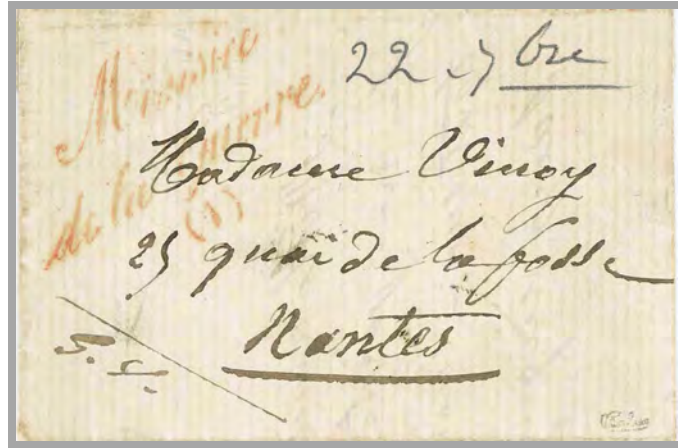 Ministère
de la Guerre.
(1)
22 7bre
Madame Vinoy
25 quai de la fosse
Nantes
S. c.